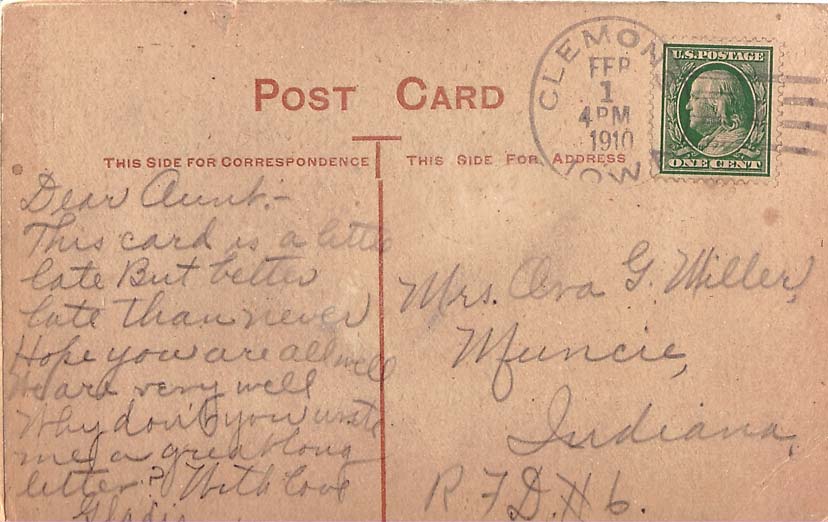 POST CARD
THIS SIDE FOR CORRESPONDENCE
THIS SIDE FOR ADDRESS
CLEMON
FEB
1
4 PM
1910
IOWA
U.S. POSTAGE
ONE CENT
Dear Aunt.-
This card is a little
late But better
late than never
Hope you are all well
We are very well
Why don't you write
me a great long
letter? With love
Mrs. Ora G. Miller,
Muncie,
Indiana,
R F D. # 6.